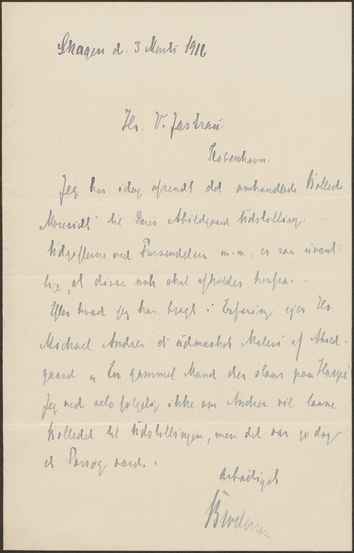 Skagen d. 3 Marts 1916
Hr. V. Jastrau
København
Jeg har idag afsendt det omhandlede Billede
til Deres Abildgaard Udstilling.
Udgifterne ved Forsendelsen m.m., er saa
at disse nok skal afholdes herfra.
Efter hvad jeg har bragt i Erfaring ejer Hr.
Michael Ancher et udmærket Maleri af Abild-
gaard "En gammel Mand der staar paa
Jeg ved selvfølgelig ikke om Ancher vil laane
Billedet til Udstillingen, men det var jo dog
et Forsøg værd.
Ærbødigst